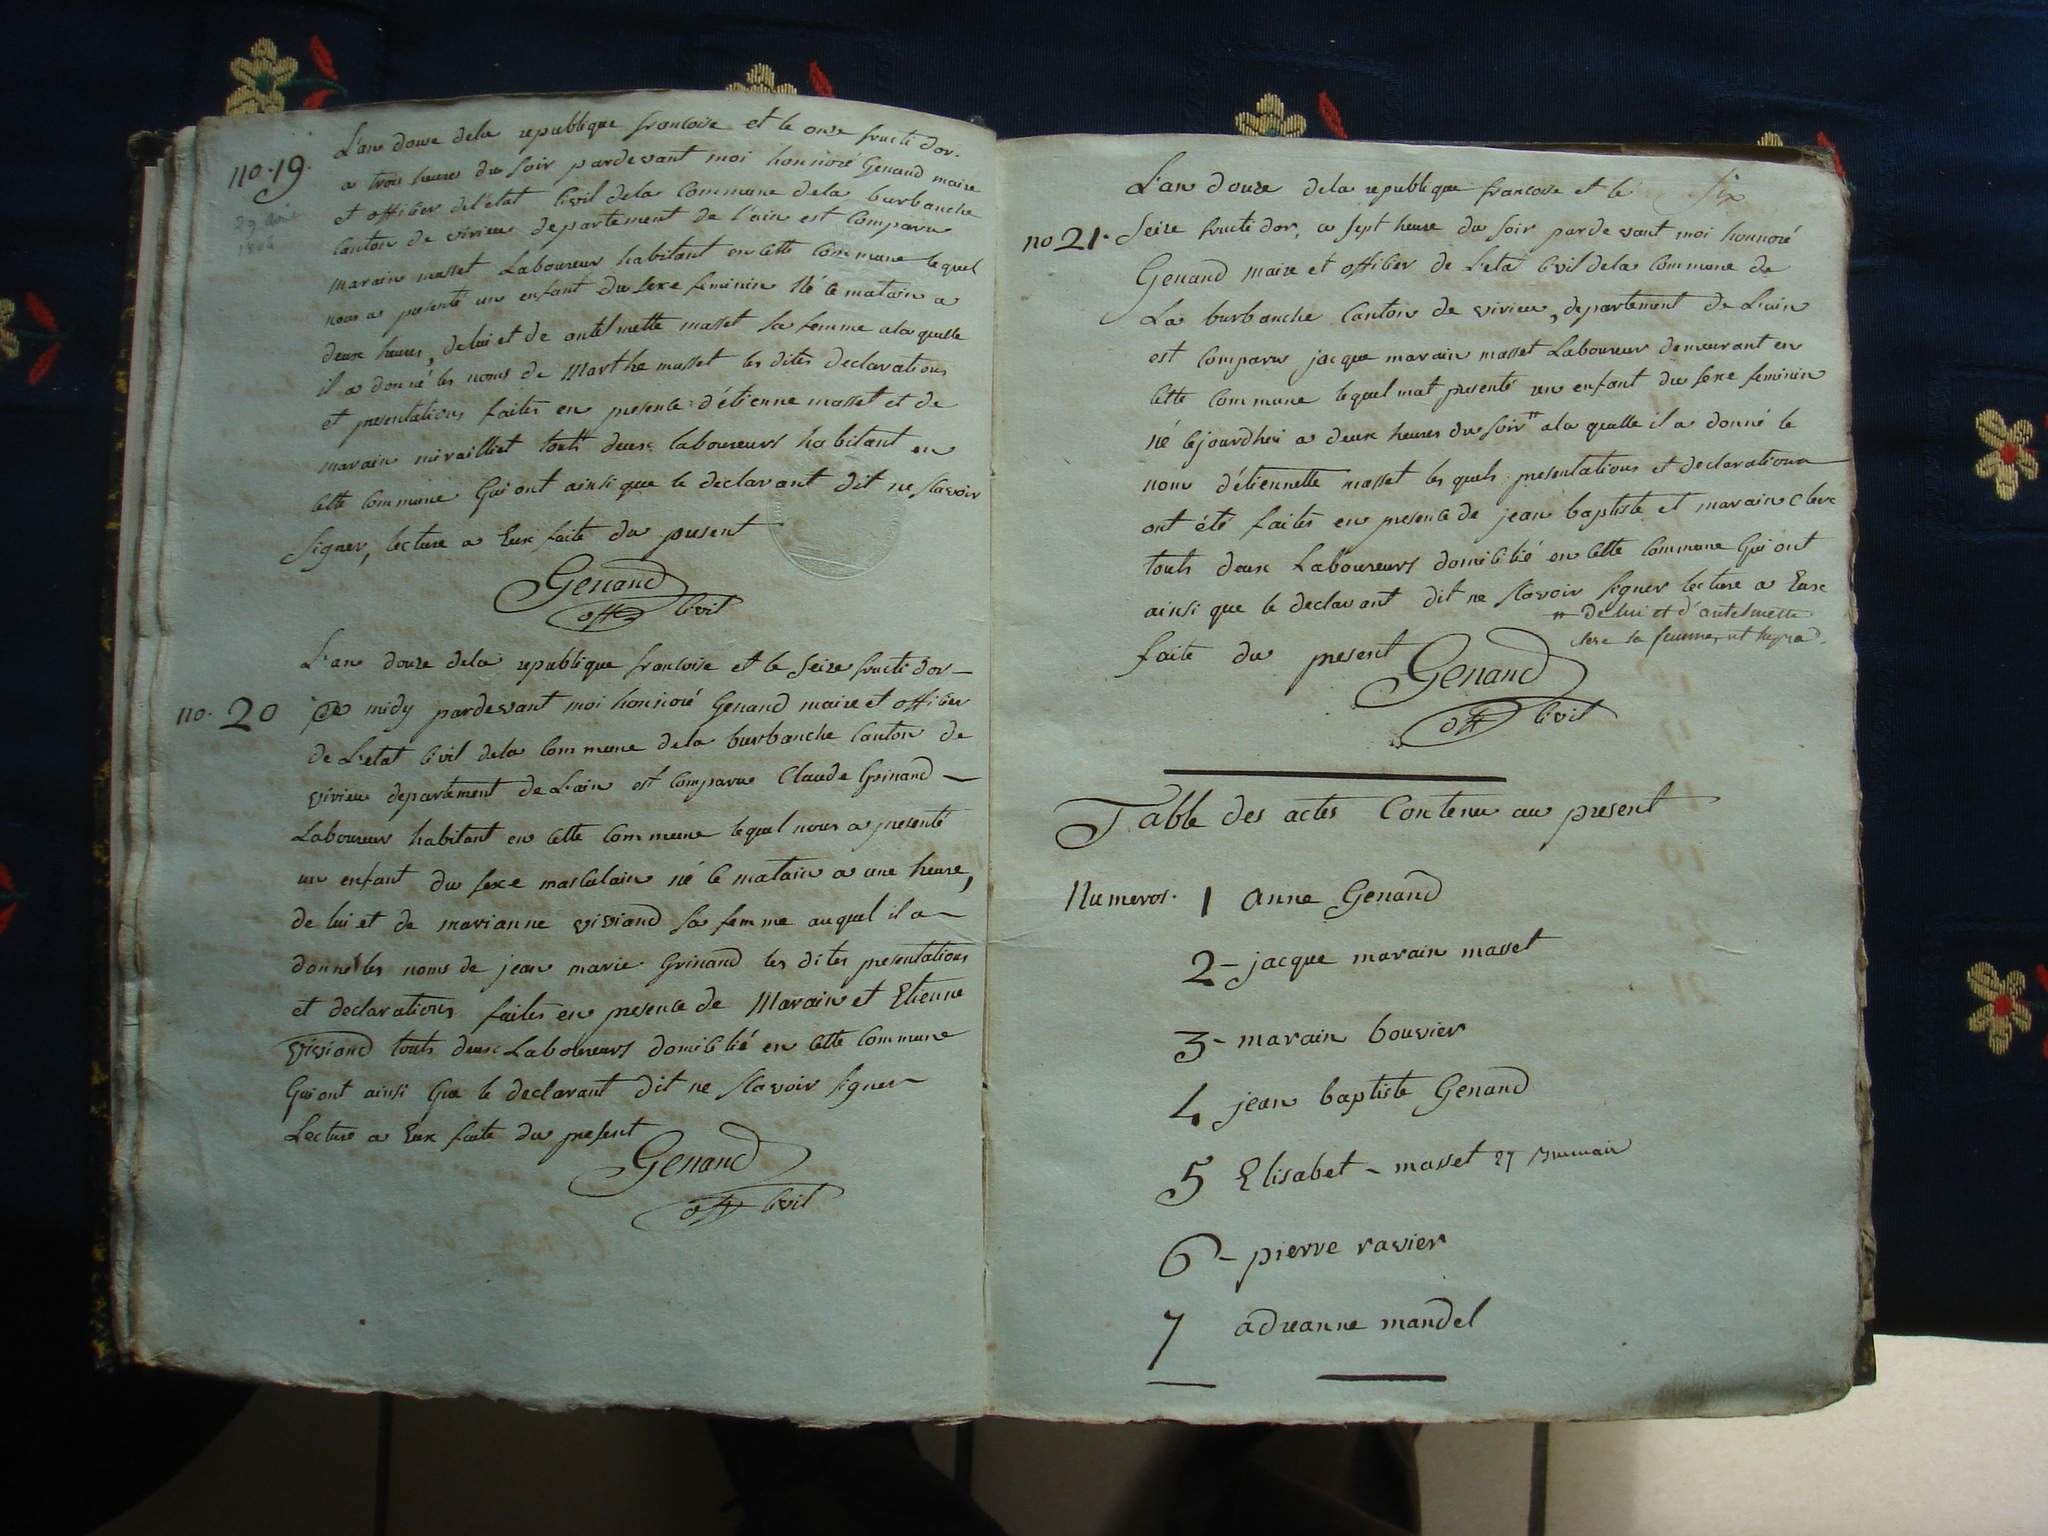 no. 19.
29 août
L'an douze dela republique francoise et le onse fructidor.
a trois heures du soir pardevant moi honnoré Genand maire
et officier del'état Civil dela Commune dela burbanche
Canton de virieu departement de l'ain est Comparu
marain masset Laboureur habitant en cette Commune lequel
nous a presenté un enfant du sexe feminin Né ce matain a
deux heures, de lui et de antelmette masset sa femme ala quelle
il a donné les noms de Marthe masset les dites declarations
et presentations faites en presence d'étienne masset et de
marain miraillet touts deux laboureurs habitant en
cette commune Qui ont ainsi que le declarant dit ne scavoir
signer, lecture a Eux faite du present
Genand
off Civil
no. 20
L'an douze dela republique francoise et le seize fructidor
a midy pardevant moi honnoré Genand maire et officier
de L'etat Civil dela Commune dela burbanche Canton de
virieu departement de L'ain est Comparu Claude Grinand
Laboureur habitant en cette Commune lequel nous a presenté
un enfant du sexe masculain né ce matain a une heure,
de lui et de marianne viviand sa femme auquel il a
donné les noms de jean marie Grinand les dites presentations
et declarations faites en presence de Marain et Etienne
viviand touts deux Laboureurs domicilié en cette Commune
Qui ont ainsi Que le declarant dit ne scavoir signer
Lecture a Eux faite du present
Genand
off Civil
six
L'an douze dela republique francoise et le
no 21. Seize fructidor, a sept heure du soir pardevant moi honnoré
Genand maire et officier de L'eta Civil dela Commune de
La burbanche Canton de virieu, departement de L'ain
est Comparu jacque marain masset Laboureur demeurant en
cette Commune lequel mat presenté un enfant du sexe feminin
né cejourdhui a deux heures du soir ala quelle il a donné le
nom d'étiennette masset les quels presentations et declaration
ont été faites en presence de jean baptiste et marain Clerc
touts deux Laboureurs domicilié en cette Commune Qui ont
ainsi que le declarant dit ne scavoir signer lecture a Eux
faite du present
de lui et d'antelmette
sa femme
Genand
off Civil
Table des actes Contenu au present
Numeros. 1 anne Genand
2 - jacque marain masset
3 - marain bouvier
4 jean baptiste Genand
5 Elisabet - masset 27 Brumair
6 - pierre ravier
7 adreanne mandel